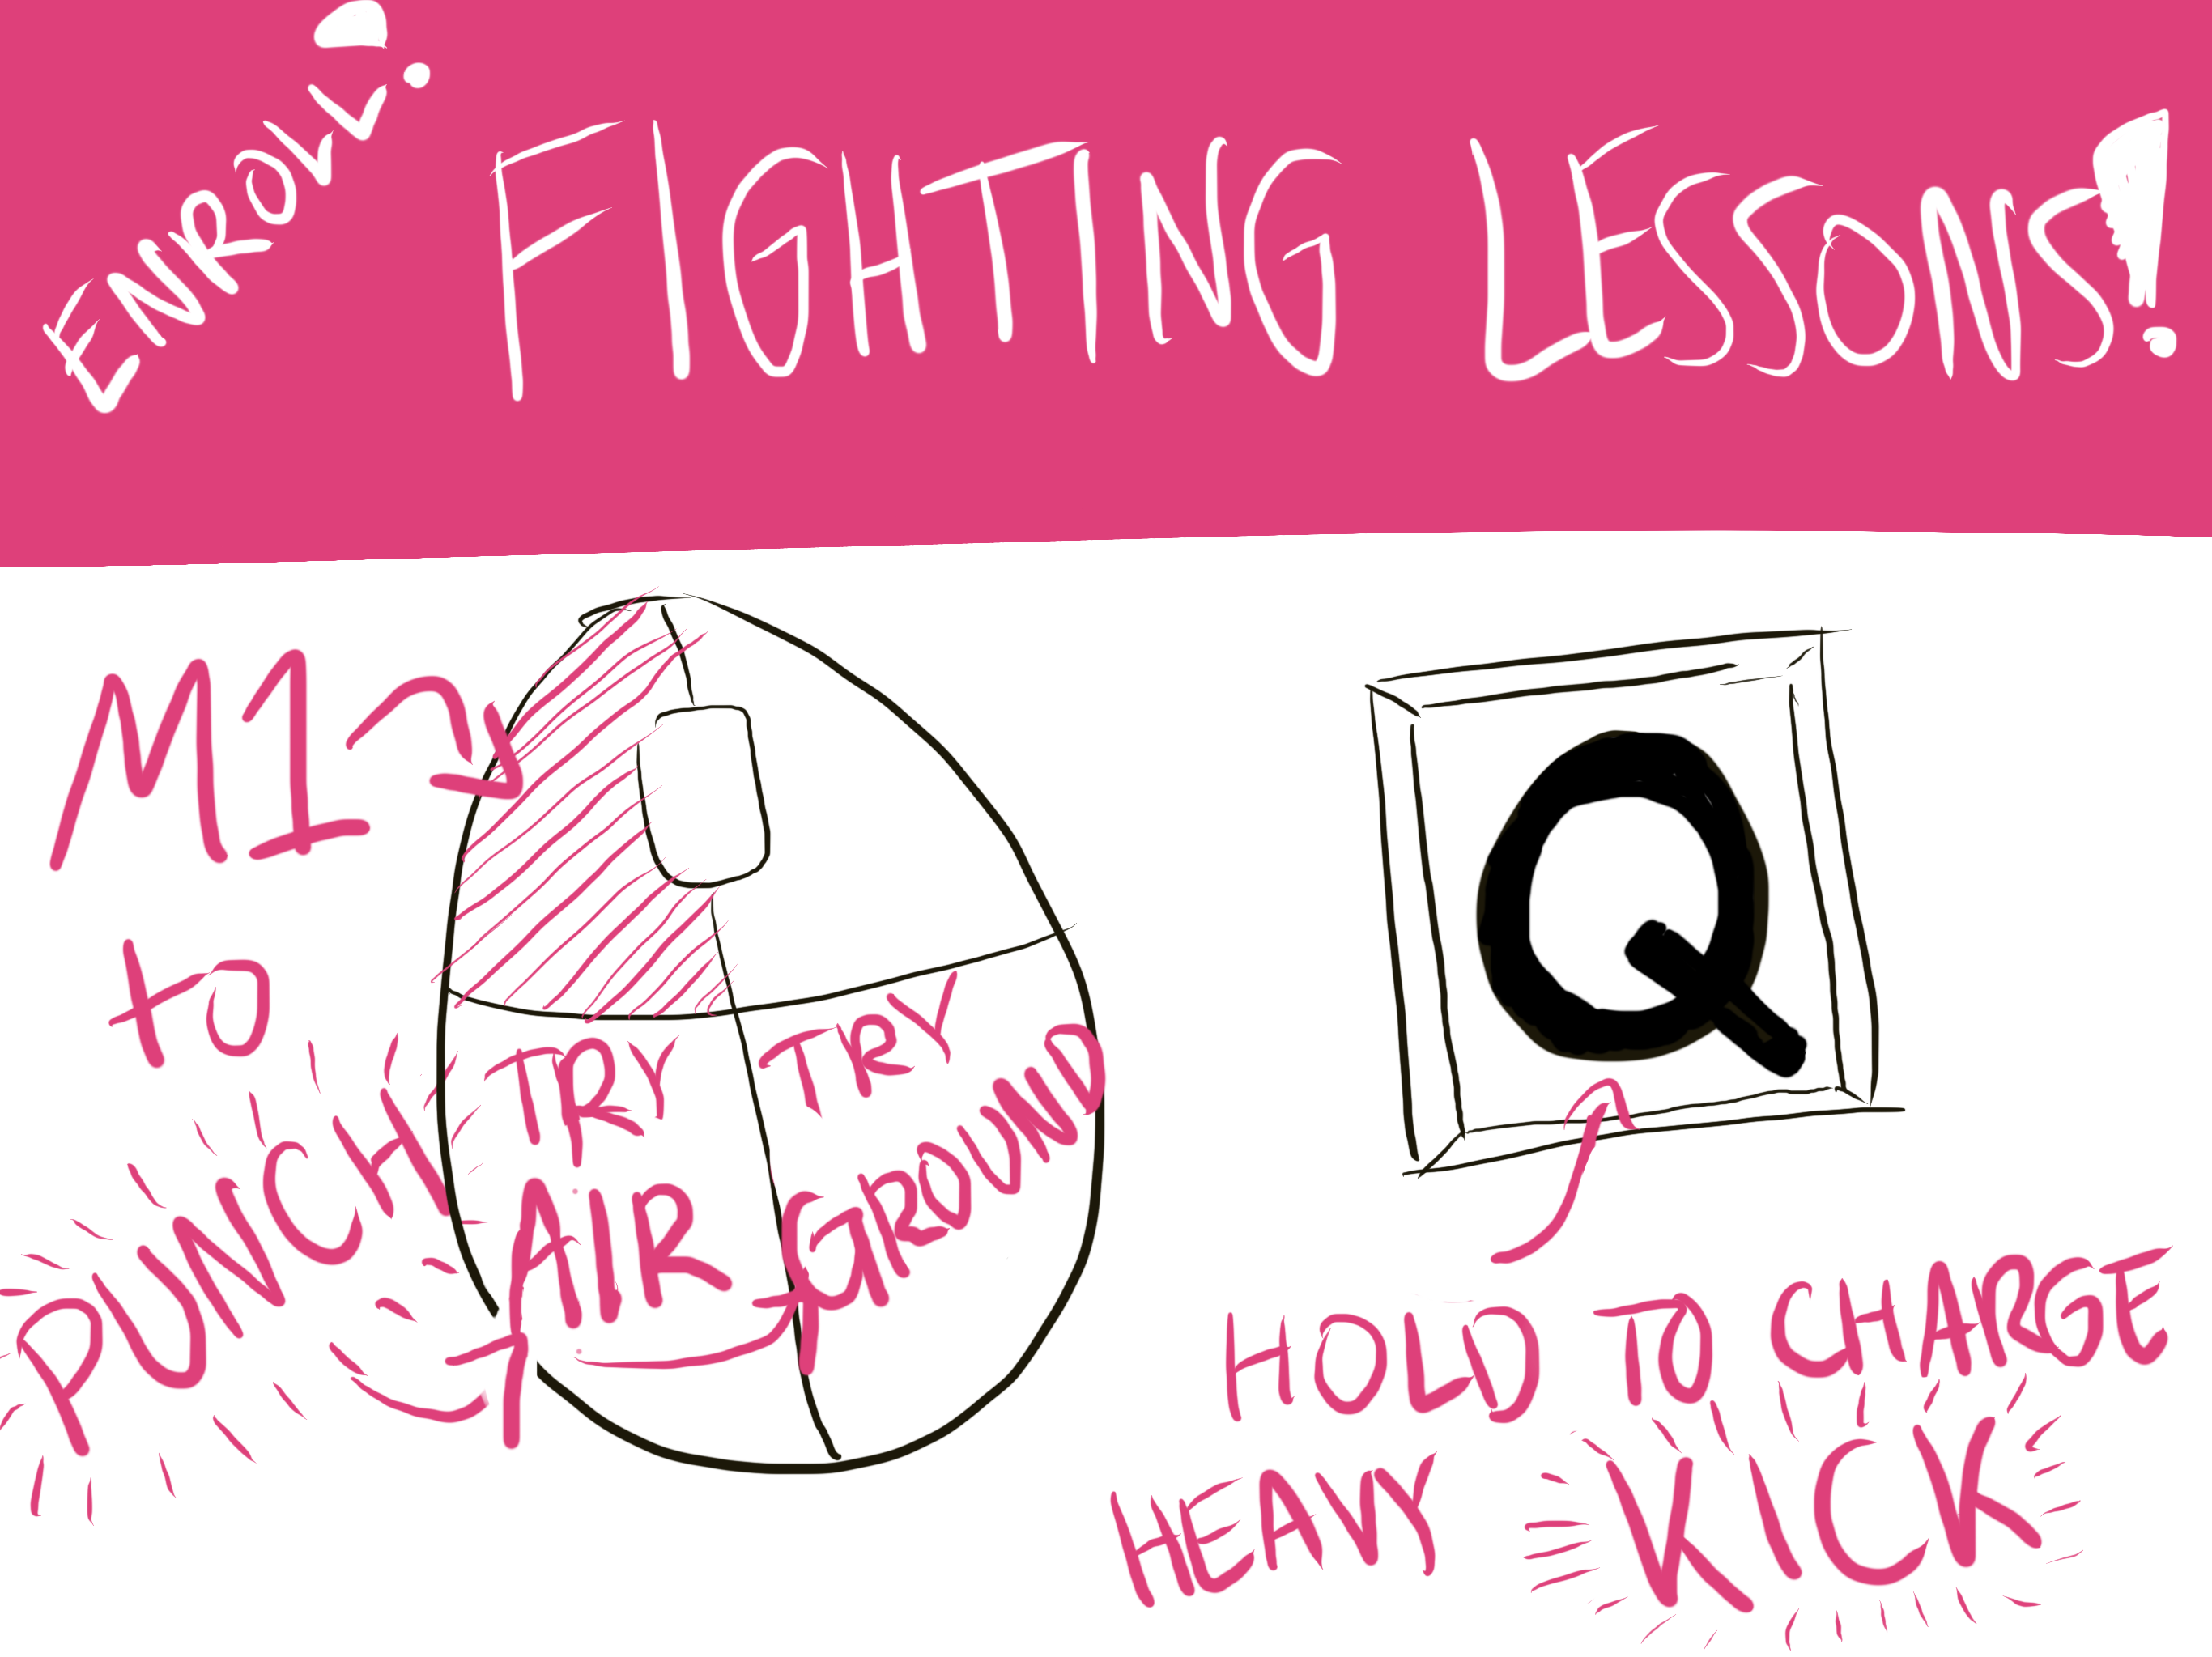 ENROLL!
FIGHTING LESSONS!
M1
to
PUNCH
TRY
AIR
TRY
GROUND
Q
HOLD TO CHARGE
HEAVY KICK